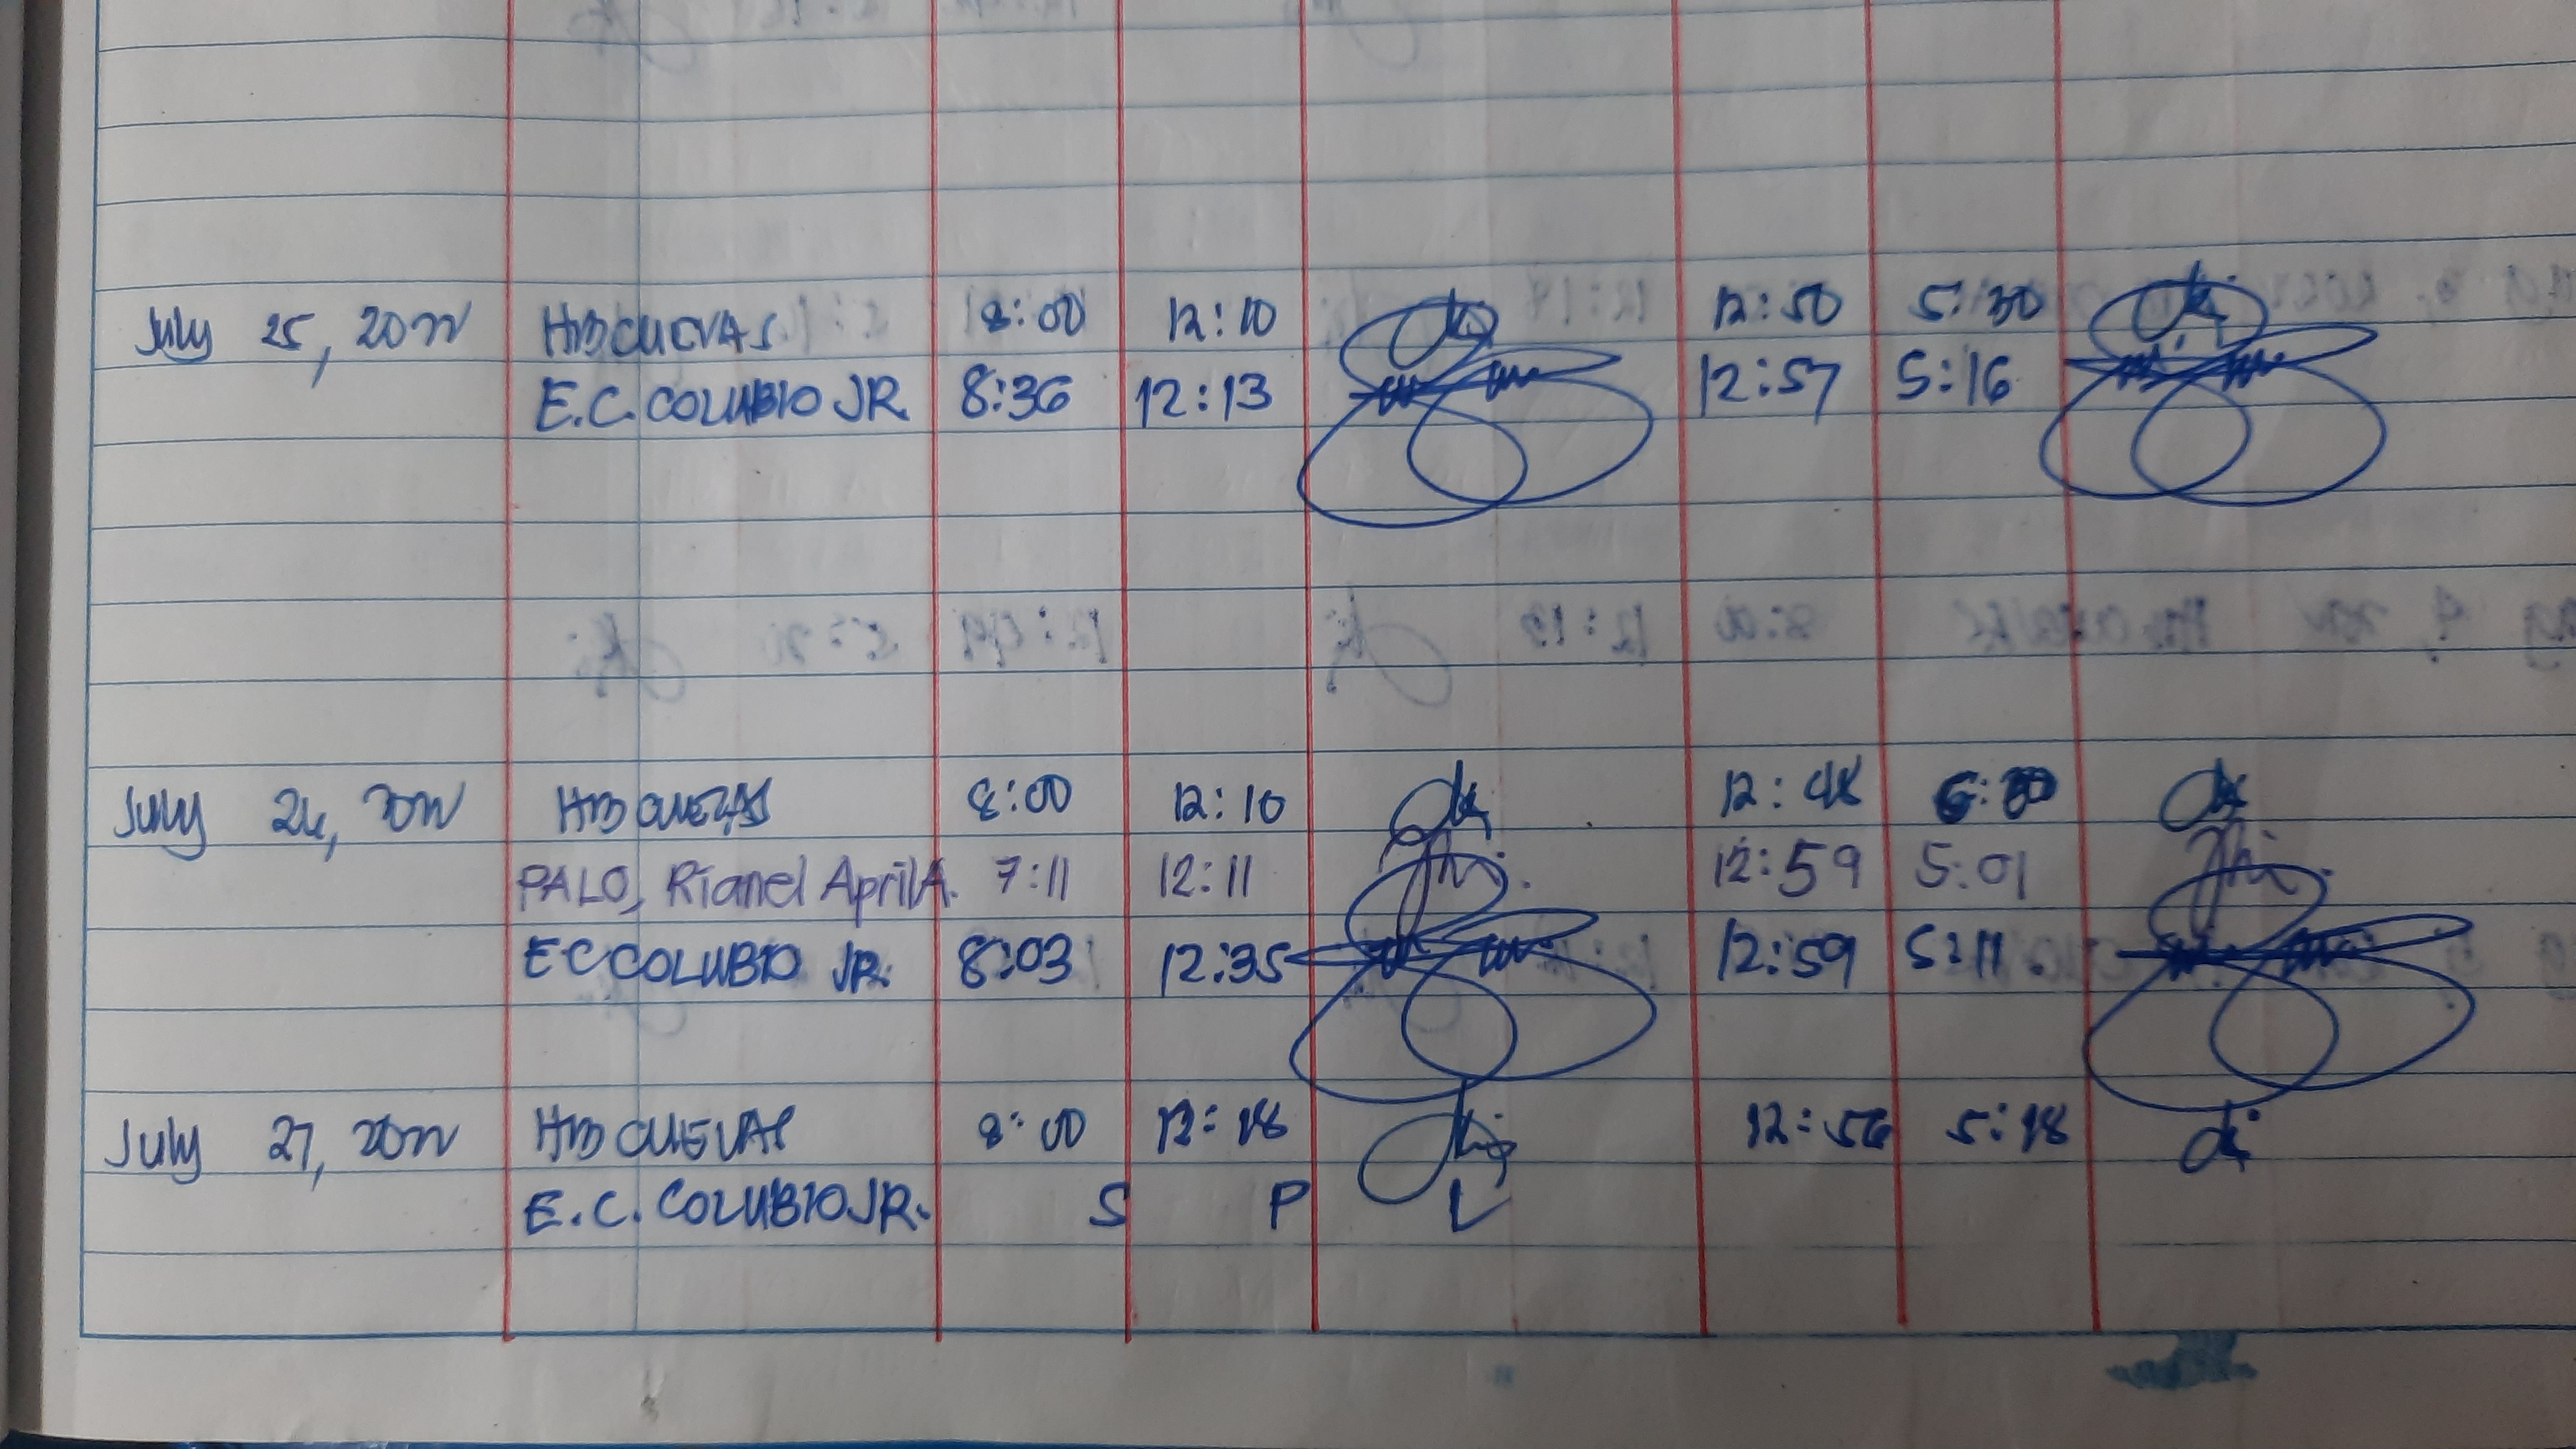 July 25, 2022 HB CUEVAS 8:00 12:10 12:50 5:30
E.C. COLUBIO JR 8:36 12:13 12:57 5:16
July 26, 2022 HB CUEVAS 8:00 12:10 12:48
PALO, Rianel April A. 7:11 12:11 12:59 5:01
E C COLUBIO JR. 8:03 12:35 12:59 5:11.
July 27, 2022 HB CUEVAS 8:00 12:18 12:56 5:18
E.C. COLUBIO JR. S P L